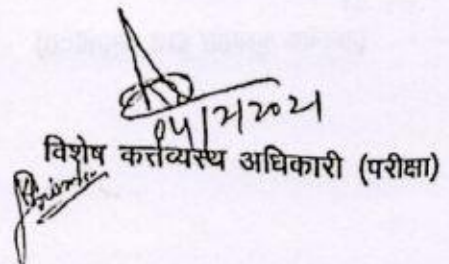 04/2/2021
विशेष कर्त्तव्यस्थ अधिकारी (परीक्षा)